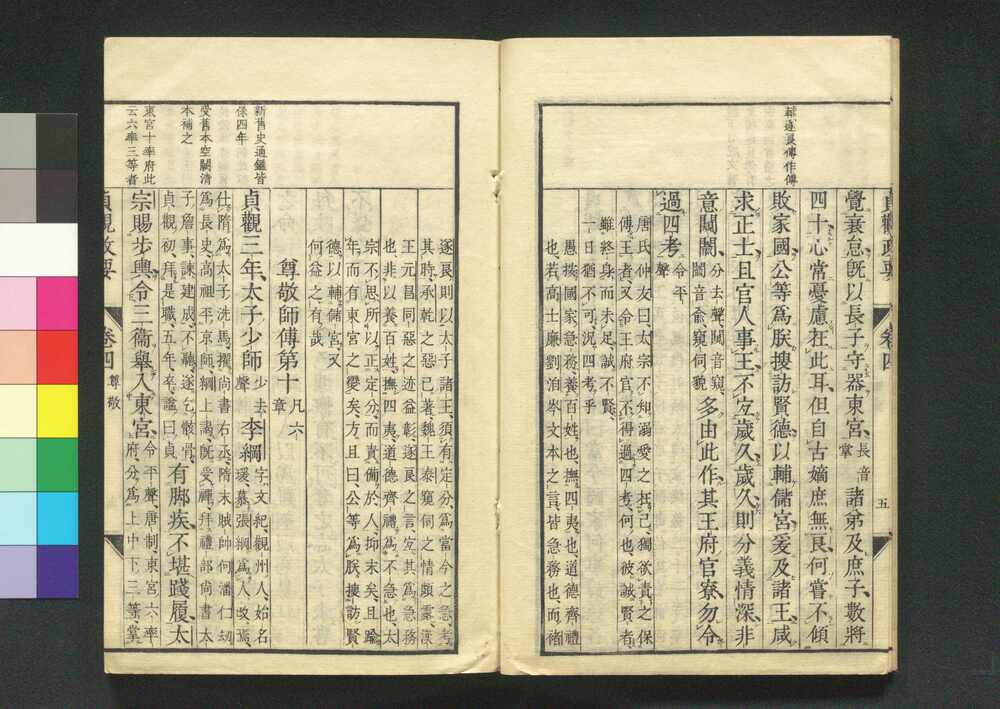 鄰逐良傅作傅
貞觀政要
卷四
五
覺衰怠既以長子守器東宮長音掌諸弟及庶子數將
四十心常憂慮在此耳但自古嫡庶無良何嘗不傾
敗家國公等爲朕搜訪賢德以輔儲宮爰及諸王咸
求正士且官人事王不宜歲久歲久則分義情深非
意闚𨵦分去聲闚音窺𨵦音兪窺伺貌多由此作其王府官寮勿令
過四考令平聲
唐氏仲友曰太宗不知溺愛之在己獨欲責之保
傅王者又令王府官不得過四考何也彼誠賢者
雖終身而未足誠不賢
一日猶不可況四考乎
愚按國家急務養百姓也撫四夷也道德齊禮
也若高士廉劉洎岑文本之言皆急務也而禇
遂良則以太子諸王須有定分爲當今之急考
其時承乾之惡已著魏王泰窺伺之情頗露漢
王元昌同惡之迹益彰遂良之言宜其爲急務
也非以養百姓撫四夷道德齊禮爲不急也太
宗不思所以正定分而責備於人抑末矣且踰
年而有東宮之變矣方且曰公等爲朕搜訪賢
德以輔儲宮又
何益之有哉
尊敬師傅第十凡六章
新舊史通鑑皆
係四年
貞觀三年太子少師少去聲李綱字文紀觀州人始名
瑗慕張綱爲人改焉
仕隋爲太子洗馬擢尚書右丞隋末賊帥何潘仁刼
爲長史高祖平京師綱上謁既受禪拜禮部尚書太
子詹事諫建成不聽遂乞骸骨
貞觀初拜是職五年卒謚曰貞
有脚疾不堪踐履太
受舊本空闕清
本補之
東宮十率府此
云六率三等者
宗賜步輿令三衞舉入東宮令平聲唐制東宮六率
府分爲上中下三等掌
貞觀政要
卷四
尊敬